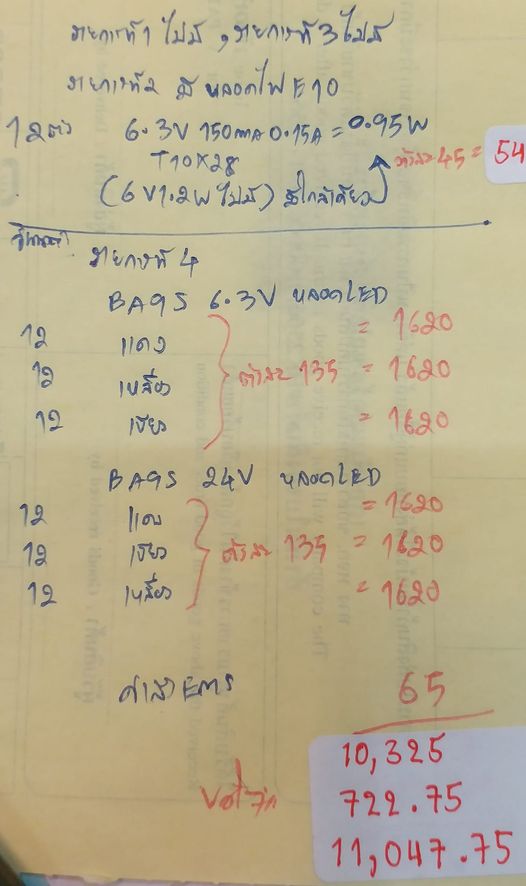 รายการที่1 ไม่มี , รายการที่ 3 ไม่มี
รายการที่2 มี หลอดไฟ E10
12ตัว 6.3V 150mA 0.15A = 0.95W
T10x28 ตัวละ 45 = 54
(6V1.2W ไม่มี) มีใกล้เคียง
รายการที่ 4
BA9S 6.3V หลอดLED
12 แดง = 1620
12 เหลือง ตัวละ 135 = 1620
12 เขียว = 1620
BA9S 24V หลอดLED
12 แดง = 1620
12 เขียว ตัวละ 135 = 1620
12 เหลือง = 1620
ค่าส่ง EMS 65
10,325
Vat 7% 722.75
11,047.75